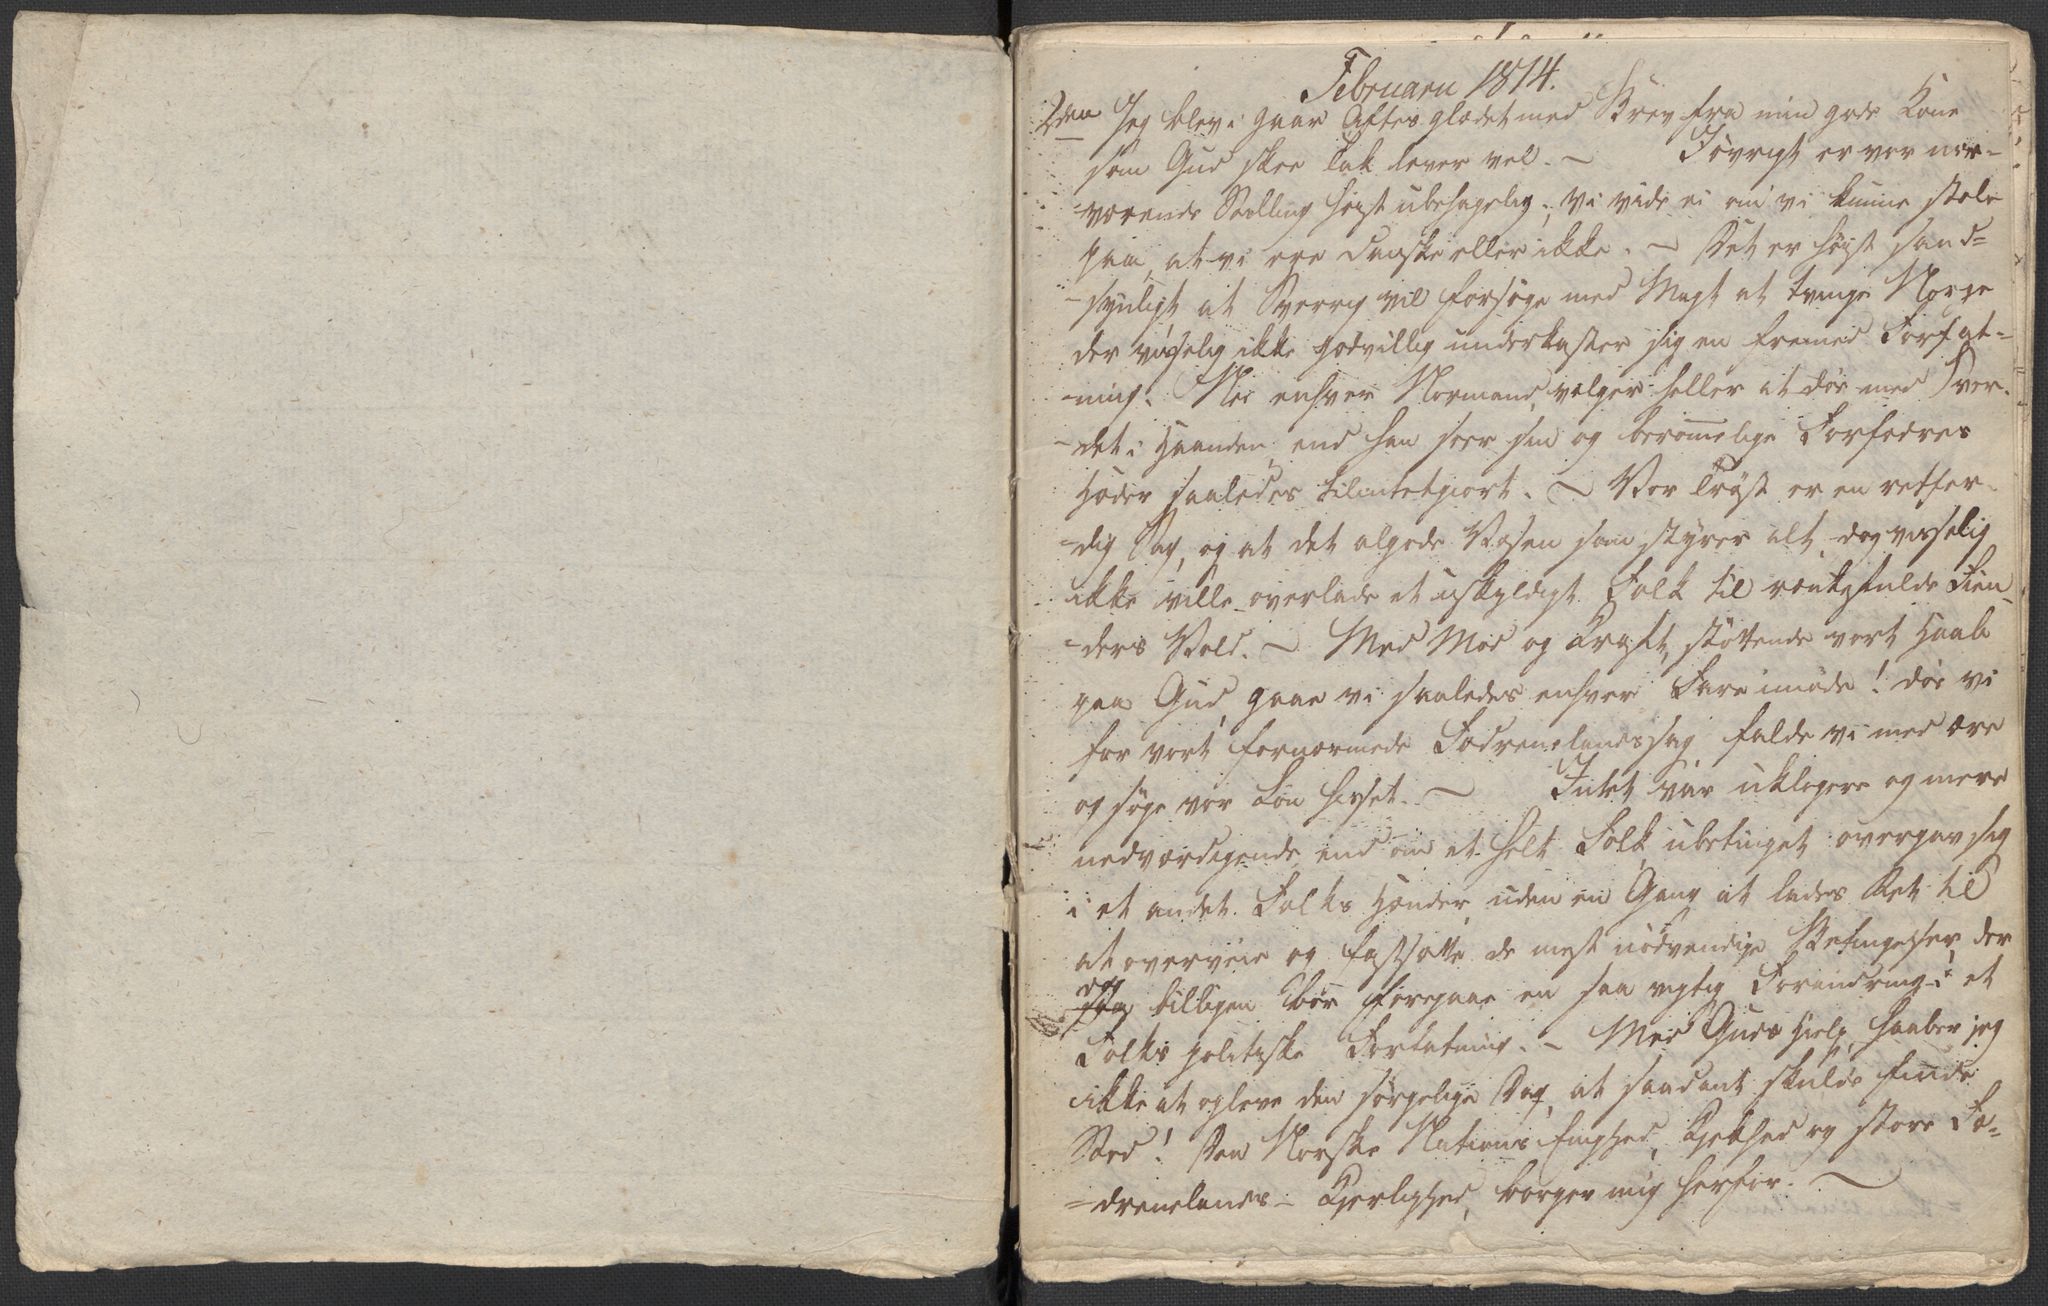 Februarii 1814.
2den Jeg blev i Gaar Aftes glædet med Brev fra min gode Kone
som Gud skee Tak lever vel. – Iøvrigt er vor nær-
-værende Stilling høist ubehagelig; vi vide ei om vi kunne stole
paa, at vi ere Danske eller ikke. – Det er høist sand=
-synligt at Sverrig vil forsøge med Magt at tvinge Norge
der visselig ikke godvillig underkaster sig en fremed Forfat=
-ning. Nei enhver Normand, vælger heller at døe med Sver-
-det i Haanden, end han seer sin og berømelige Forfædres
Hæder saaledes tilintetgiort. – Vor Trøst er en retfær-
=dig Sag, og at det algode Væsen som styrer alt, dog visselig
ikke ville overlade et uskyldigt Folk til rænkefulde Fien-
=ders Vold. – Med Mod og Kraft, støttende vort Haab
paa Gud, gaae vi saaledes enhver Fare imøde! døe vi
for vort fornærmede Fædrenelands sag, falde vi med ære
og søge vor Løn hisset. – Intet var uklogere og mere
nedværdigende, end om et helt Folk ubetinget overgav sig
i et andet Folks Hænder, uden en Gang at lades Ret til
at overveie og fastsætte de mest nødvendige Betingelser, der
dog
billigen bør foregaae en saa vigtig Forandring i et
Folks politiske Forfatning. – Med Guds Hielp, haaber jeg
ikke at opleve den sørgelige Dag, at saadant skulde finde
Sted! Den Norske Nations Enighed, Kjekhed og store Fæ=
=drenelands-Kjerlighed, borger mig herfor. –